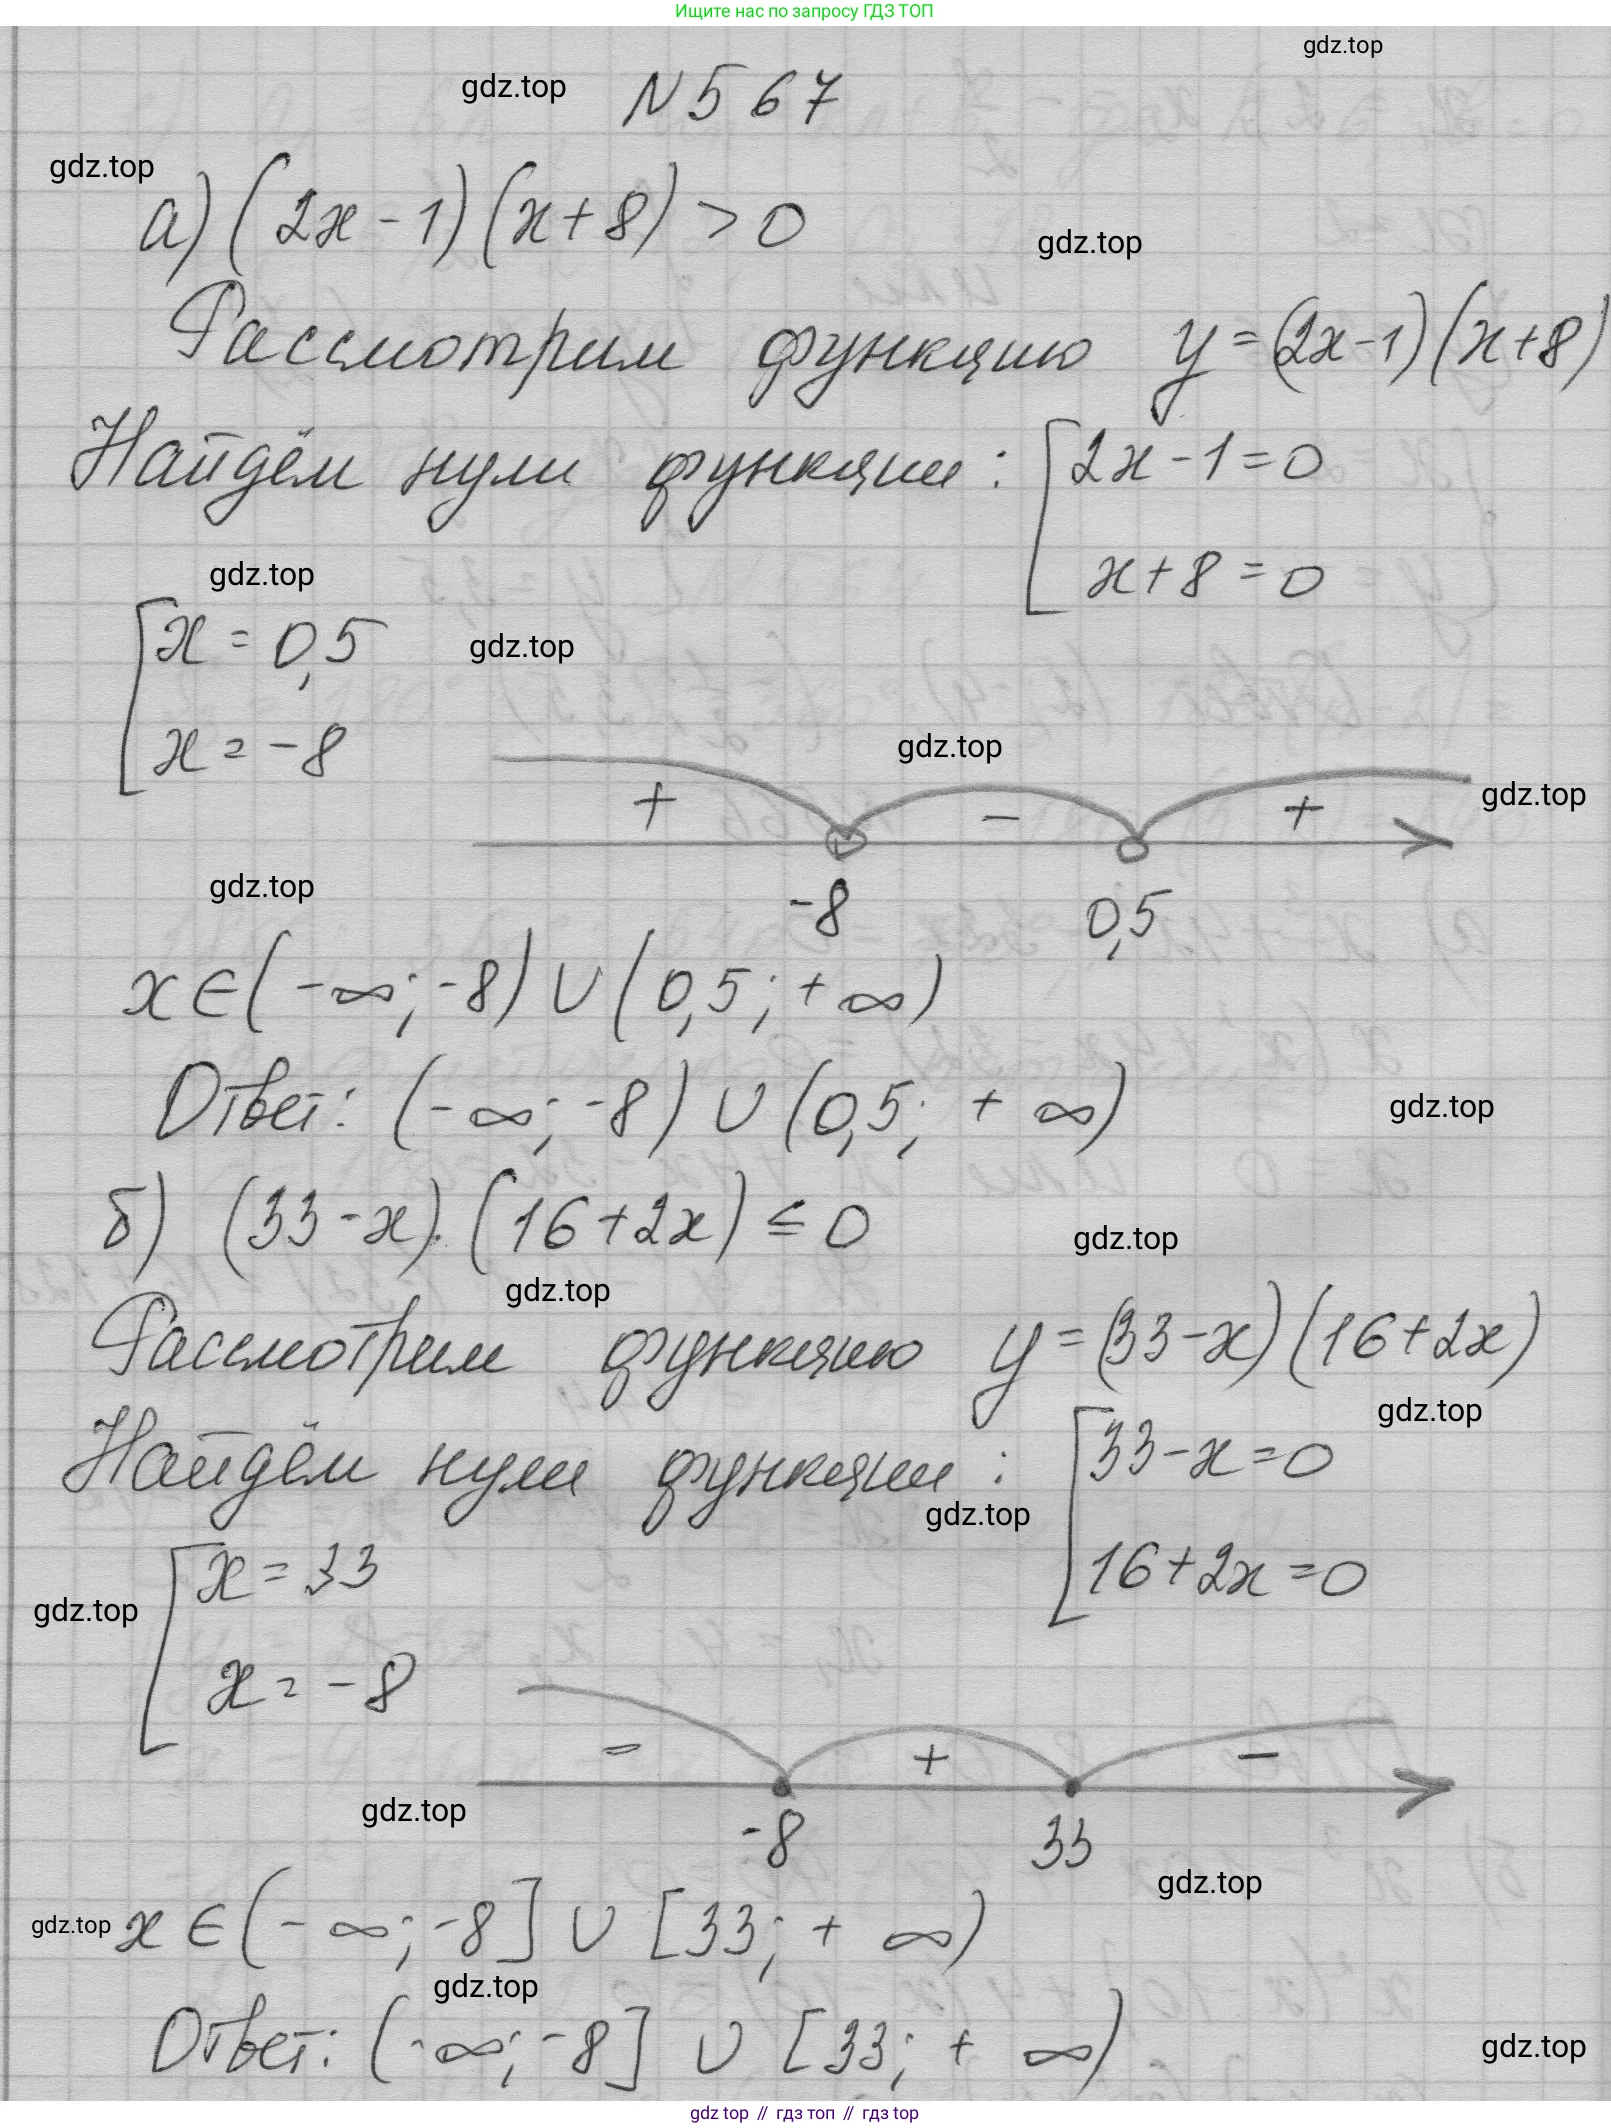 Ищите нас по запросу ГДЗ ТОП
gdz.top
gdz.top N567
gdz.top
а) (2x-1)(x+8) > 0
gdz.top
Рассмотрим функцию y=(2x-1)(x+8)
Найдём нули функции: [2x-1=0
x+8=0
gdz.top
[x=0,5
gdz.top
x=-8
gdz.top
+ - +
gdz.top
-8 0,5
gdz.top
x∈(-∞;-8)∪(0,5;+∞)
Ответ: (-∞;-8)∪(0,5;+∞)
gdz.top
б) (33-x)·(16+2x)≤0
gdz.top
gdz.top
Рассмотрим функцию y=(33-x)(16+2x)
gdz.top
Найдём нули функции: [33-x=0
gdz.top
16+2x=0
[x=33
gdz.top
x=-8
- + -
gdz.top
-8 33
gdz.top
gdz.top
x∈(-∞;-8]∪[33;+∞)
gdz.top
Ответ: (-∞;-8]∪[33;+∞)
gdz.top
gdz top // гдз топ // gdz top